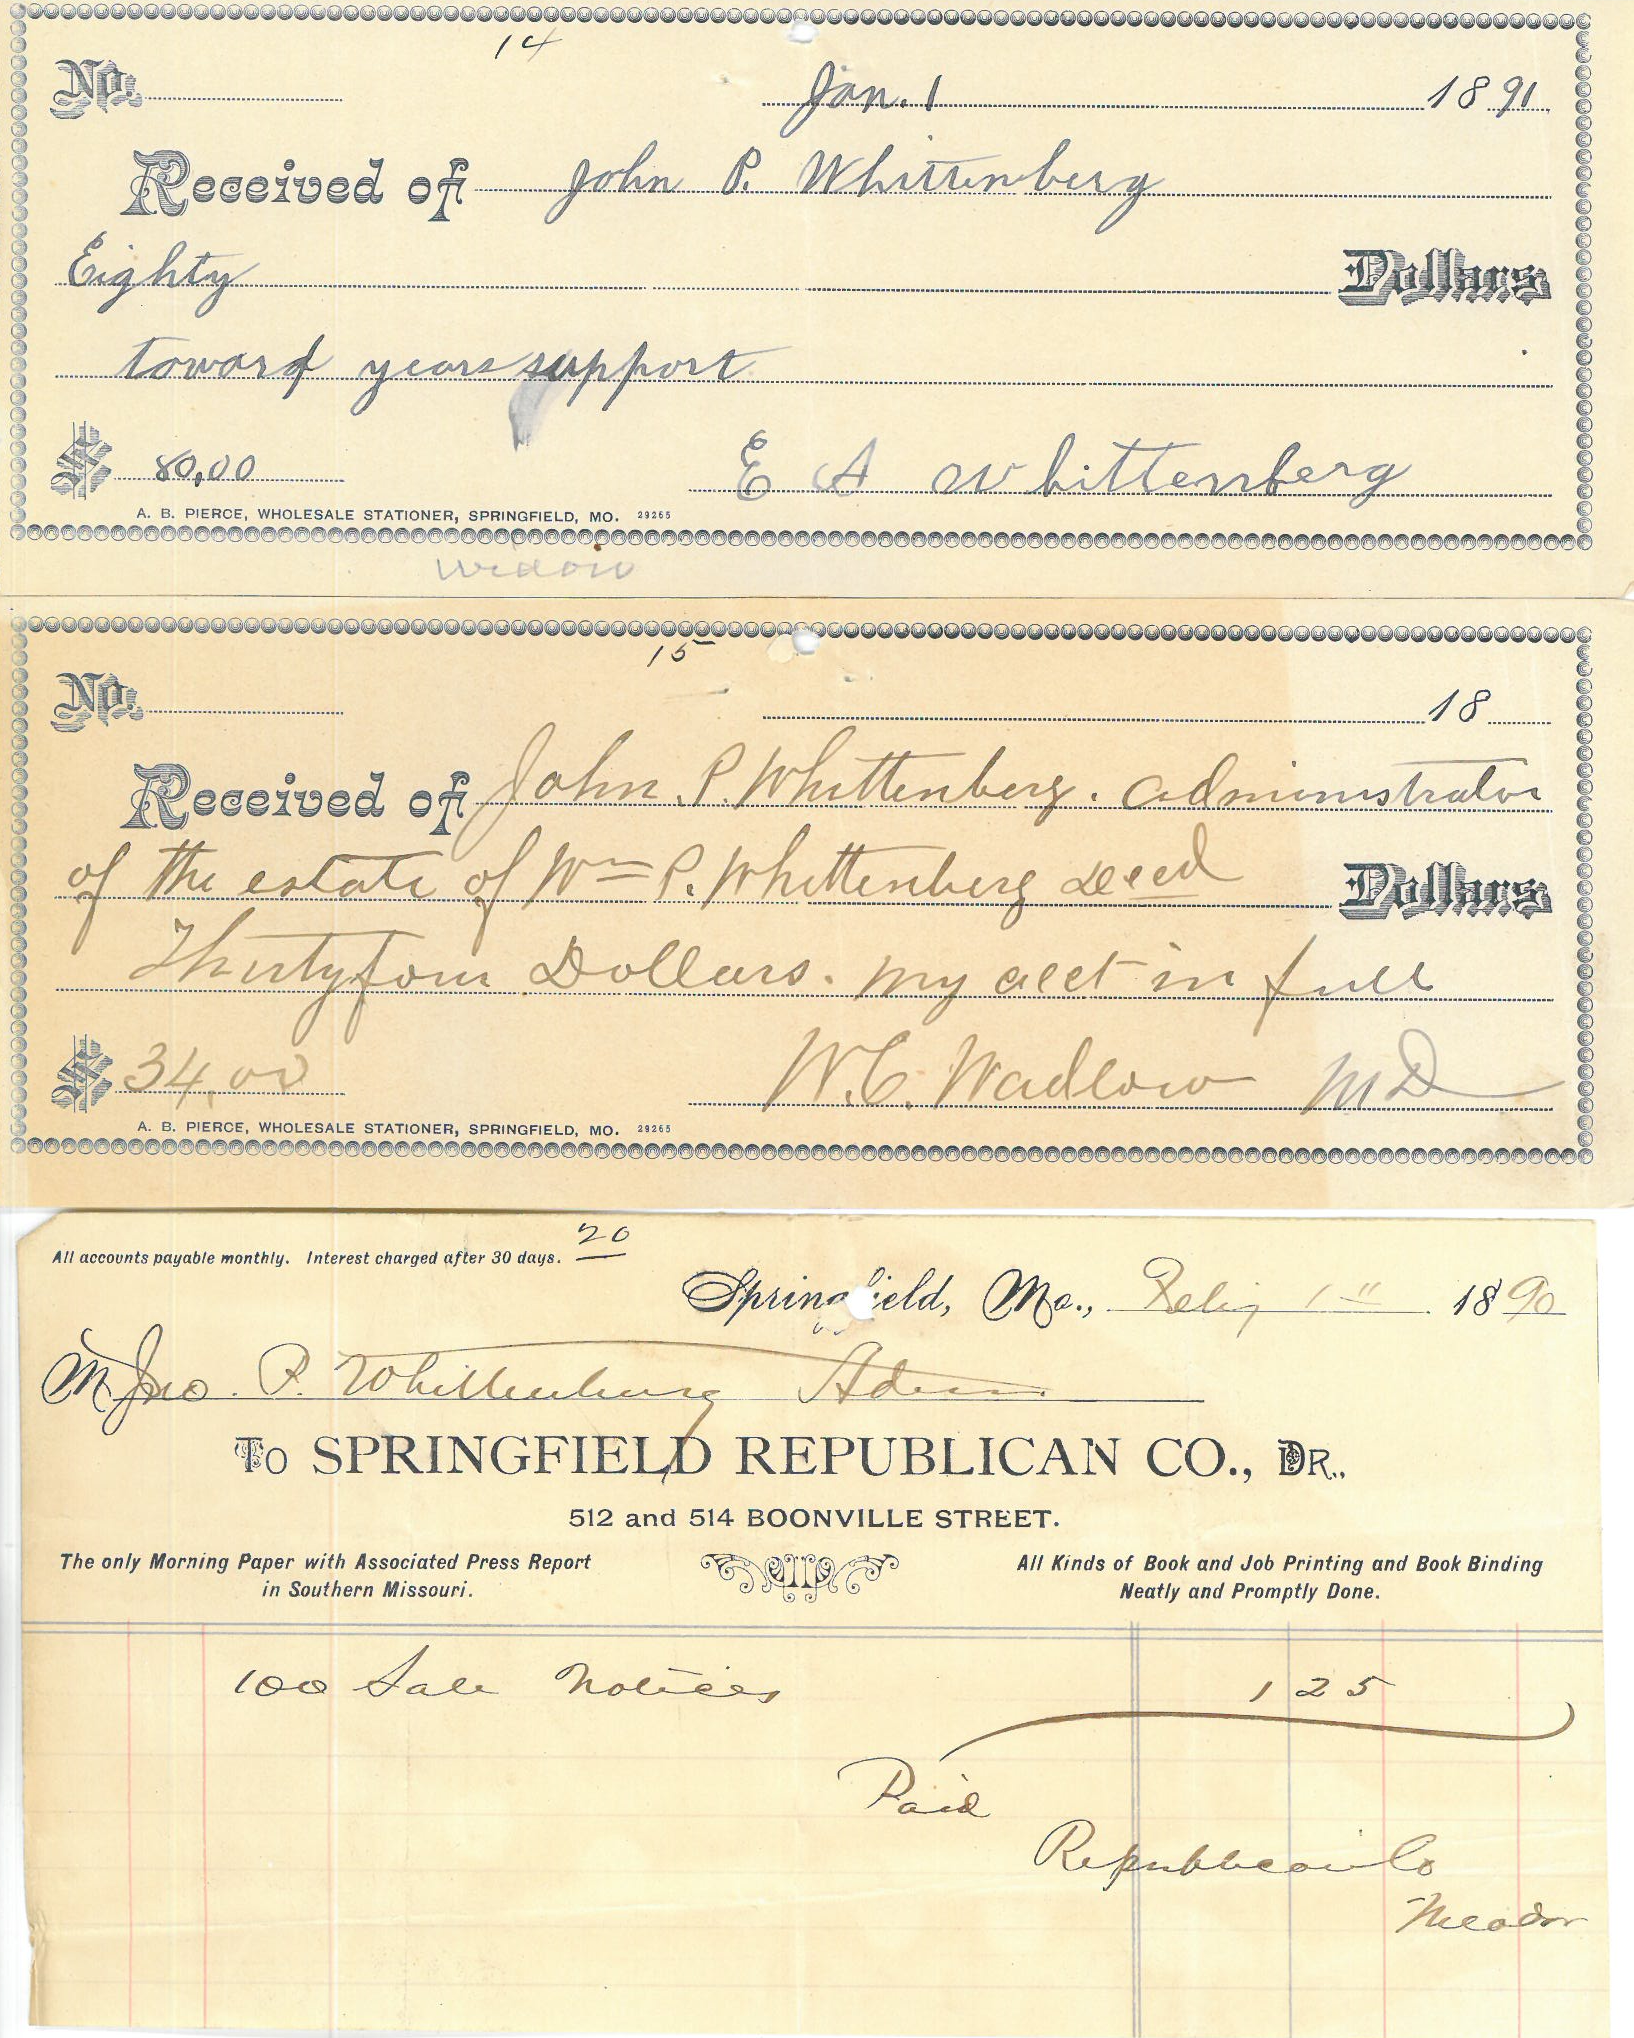 14
No. Jan. 1 1891
Received of John P. Whittenberg
Eighty Dollars
toward years support
$ 80,00 E A Whittenberg
A. B. PIERCE, WHOLESALE STATIONER, SPRINGFIELD, MO. 29265
widow
15
No. 18
Received of John P. Whittenberg. administrator
of the estate of Wm P. Whittenberg Decd Dollars
Thirtyfour Dollars. my acct in full
$ 34.00 W. C. Wadlow MD
A. B. PIERCE, WHOLESALE STATIONER, SPRINGFIELD, MO. 29265
20
All accounts payable monthly. Interest charged after 30 days.
Springfield, Mo., 1890
M Jno. P. Whittenburg Adm
To SPRINGFIELD REPUBLICAN CO., DR.,
512 and 514 BOONVILLE STREET.
The only Morning Paper with Associated Press Report
in Southern Missouri.
All Kinds of Book and Job Printing and Book Binding
Neatly and Promptly Done.
100 Sale Notices 1 25
Paid
Republican Co
Meador